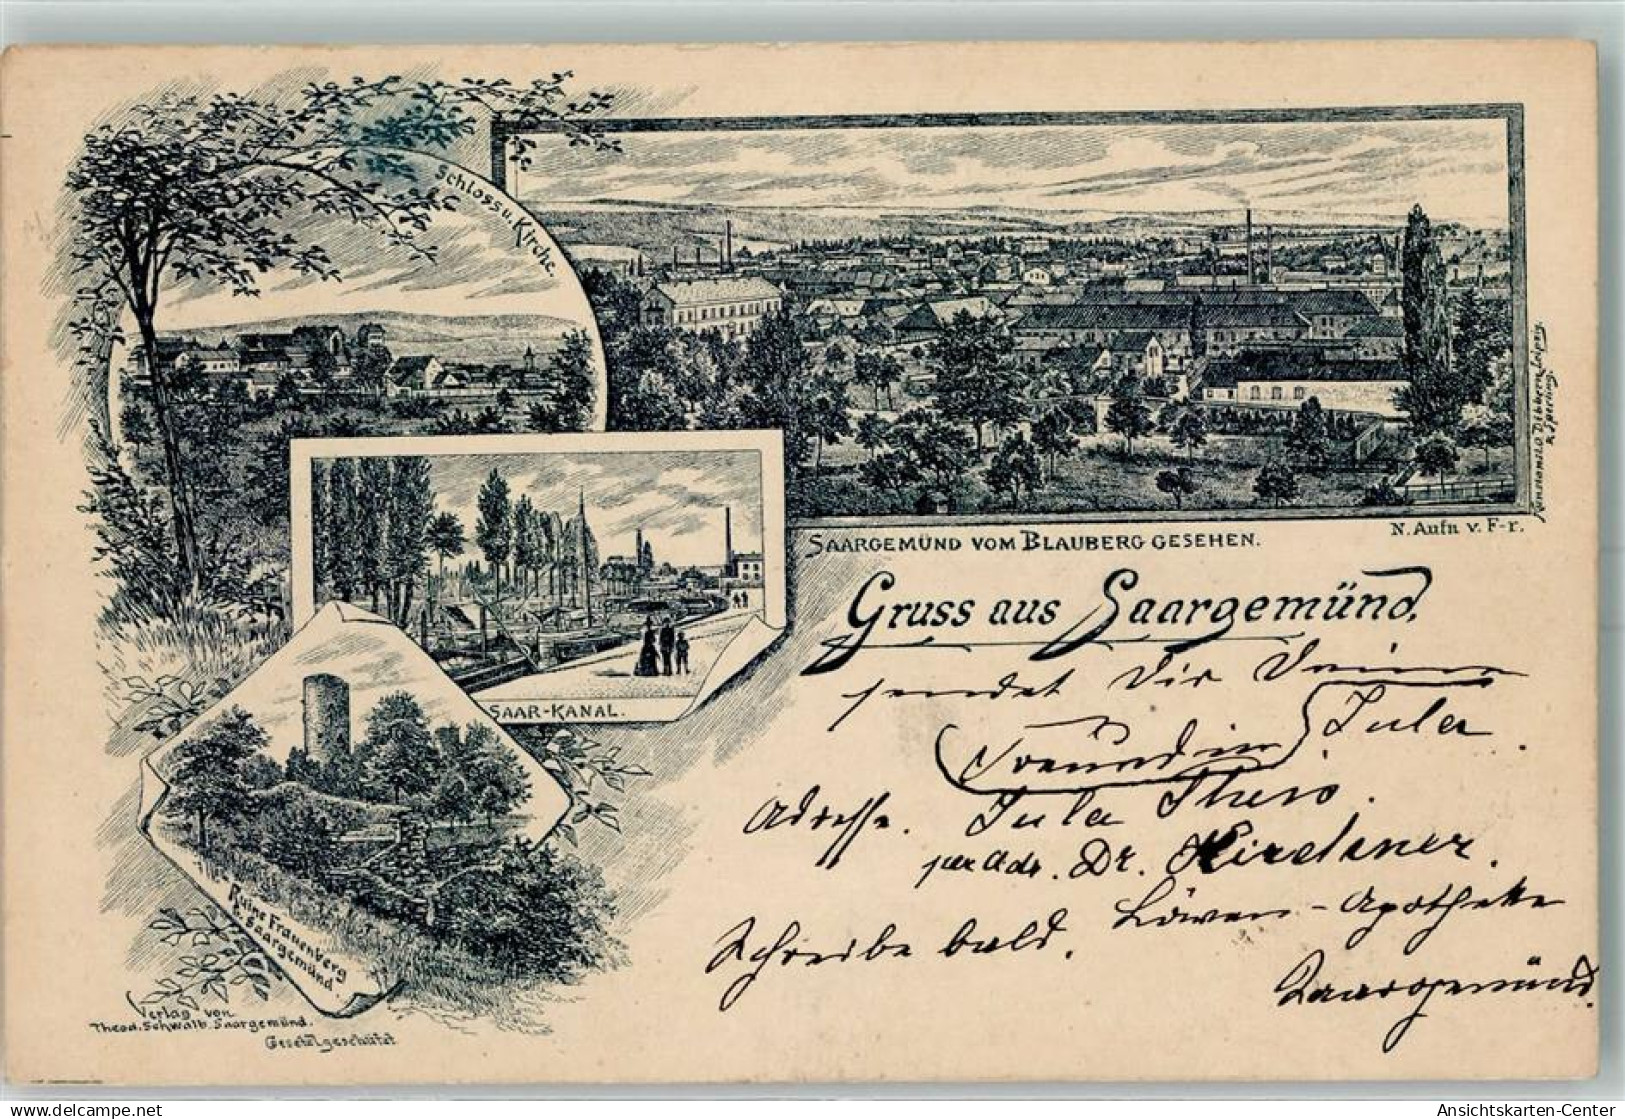 Schloss u. Kirche.
SAARGEMÜND VOM BLAUBERG GESEHEN.
N. Aufn v. F-r.
SAAR-KANAL.
Ruine Frauenberg
b. Saargemünd.
Verlag von
Theod. Schwalb. Saargemünd.
Gesetzl geschützt
Gruss aus Saargemünd.
sendet Dir Deine
Freundin Jula.
Adresse. Jula
per Adr. Dr. Kirchner.
Löwen-Apotheke
Schreibe bald.
Saargemünd.
www.delcampe.net
TPK69
Ansichtskarten-Center